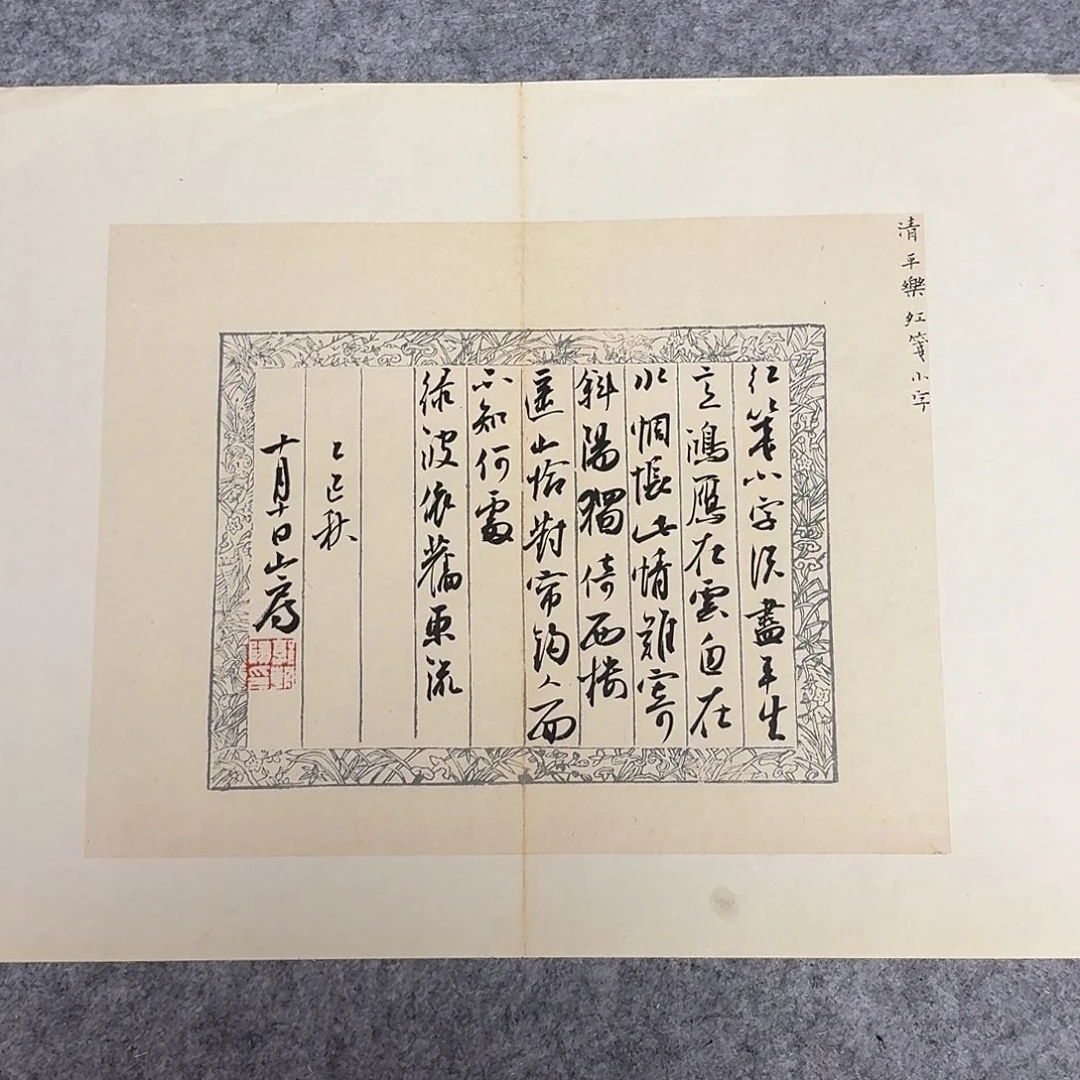 清平樂 红箋小字
红箋小字说盡平生
意鴻鴈在雲鱼在
水惆悵此情難寄
斜陽獨倚西楼
遥山恰對帘钩人面
不知何處
绿波依舊東流
乙巳秋
十月十日山房